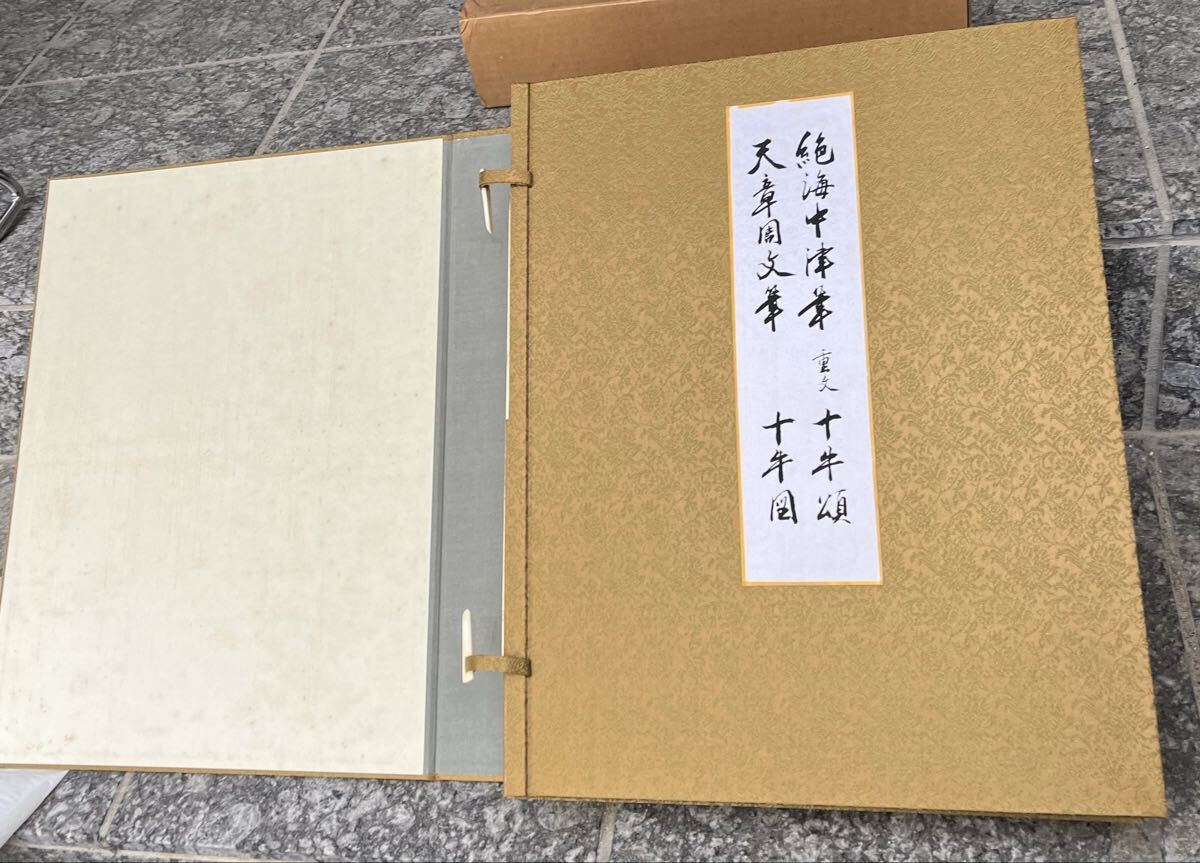 絶海中津筆 重文 十牛頌
天章周文筆 十牛図